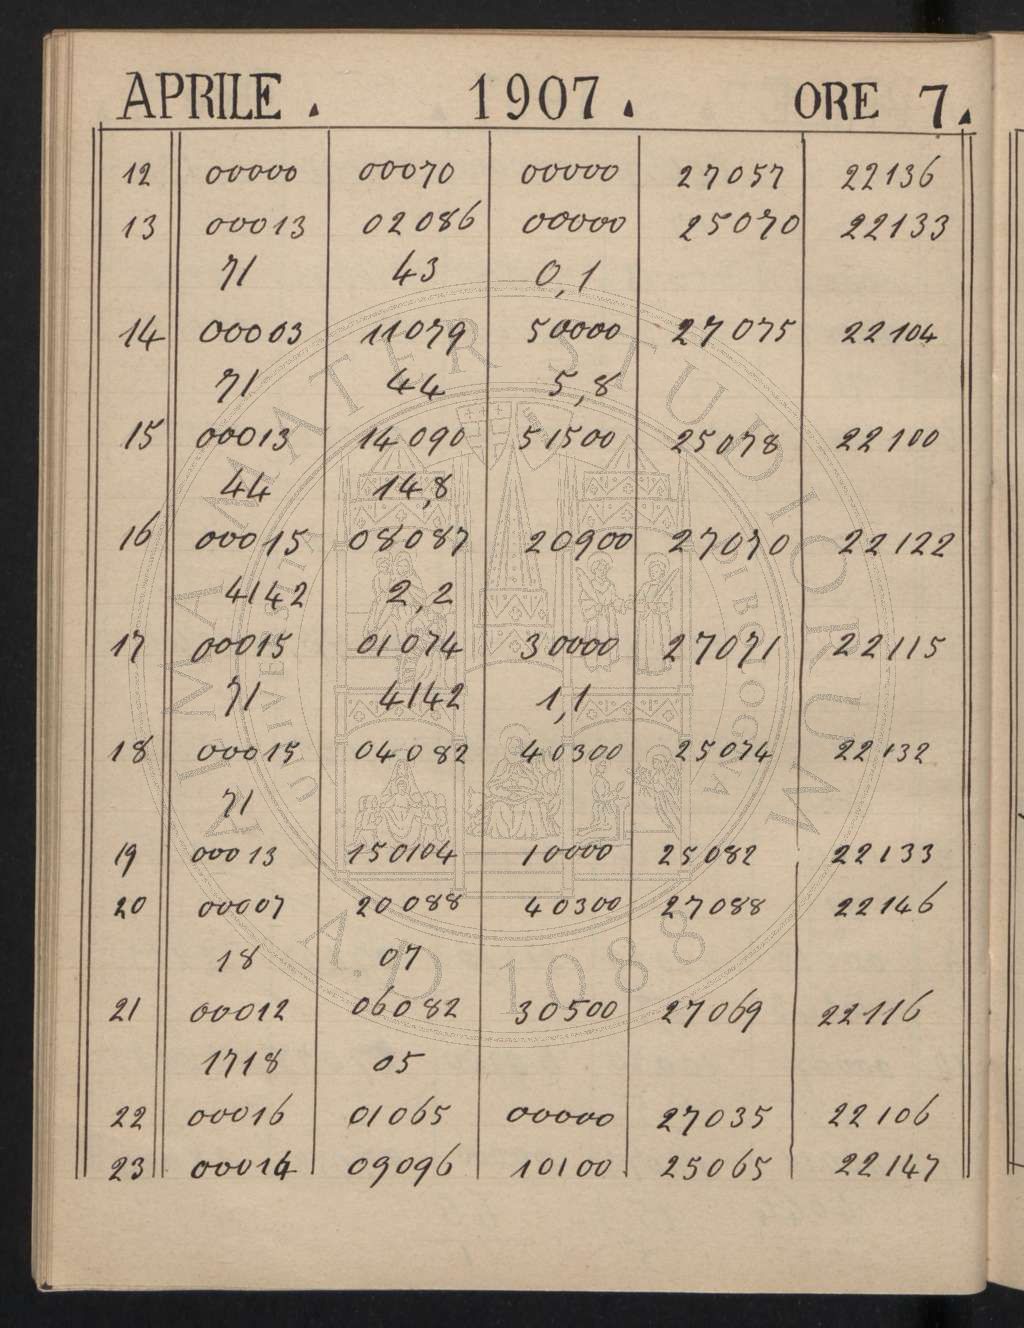 APRILE. 1907. ORE 7.
12 00000 00070 00000 27057 22136
13 00013 02086 00000 25070 22133
71 43 0,1
14 00003 11079 50000 27075 22104
71 44 5,8
15 00013 14090 51500 25078 22100
44 14,8
16 00015 08087 20900 27070 22122
4142 2,2
17 00015 01074 30000 27071 22115
71 4142 1,1
18 00015 04082 40300 25074 22132
71
19 00013 150104 10000 25082 22133
20 00007 20088 40300 27088 22146
18 07
21 00012 06082 30500 27069 22116
1718 05
22 00016 01065 00000 27035 22106
23 00014 09096 10100 25065 22147
ALMA MATER STUDIORUM
A.D. 1088